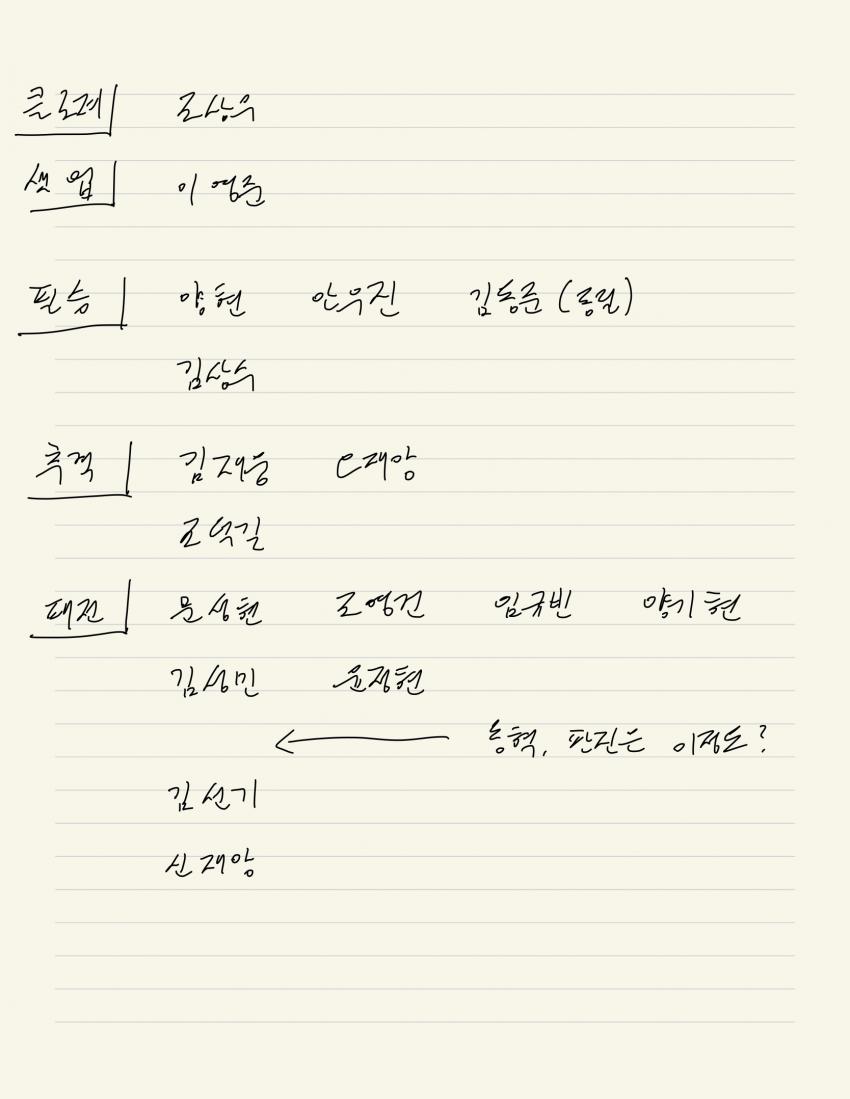 클로져 조상우
셋업 이영준
필승 양현 안우진 김동준 (롱릴)
김상수
추격 김재웅 C재앙
조덕길
패전 문성현 조영건 임규빈 양기현
김성민 윤정현
← 동혁, 판진은 이정도?
김선기
신재앙